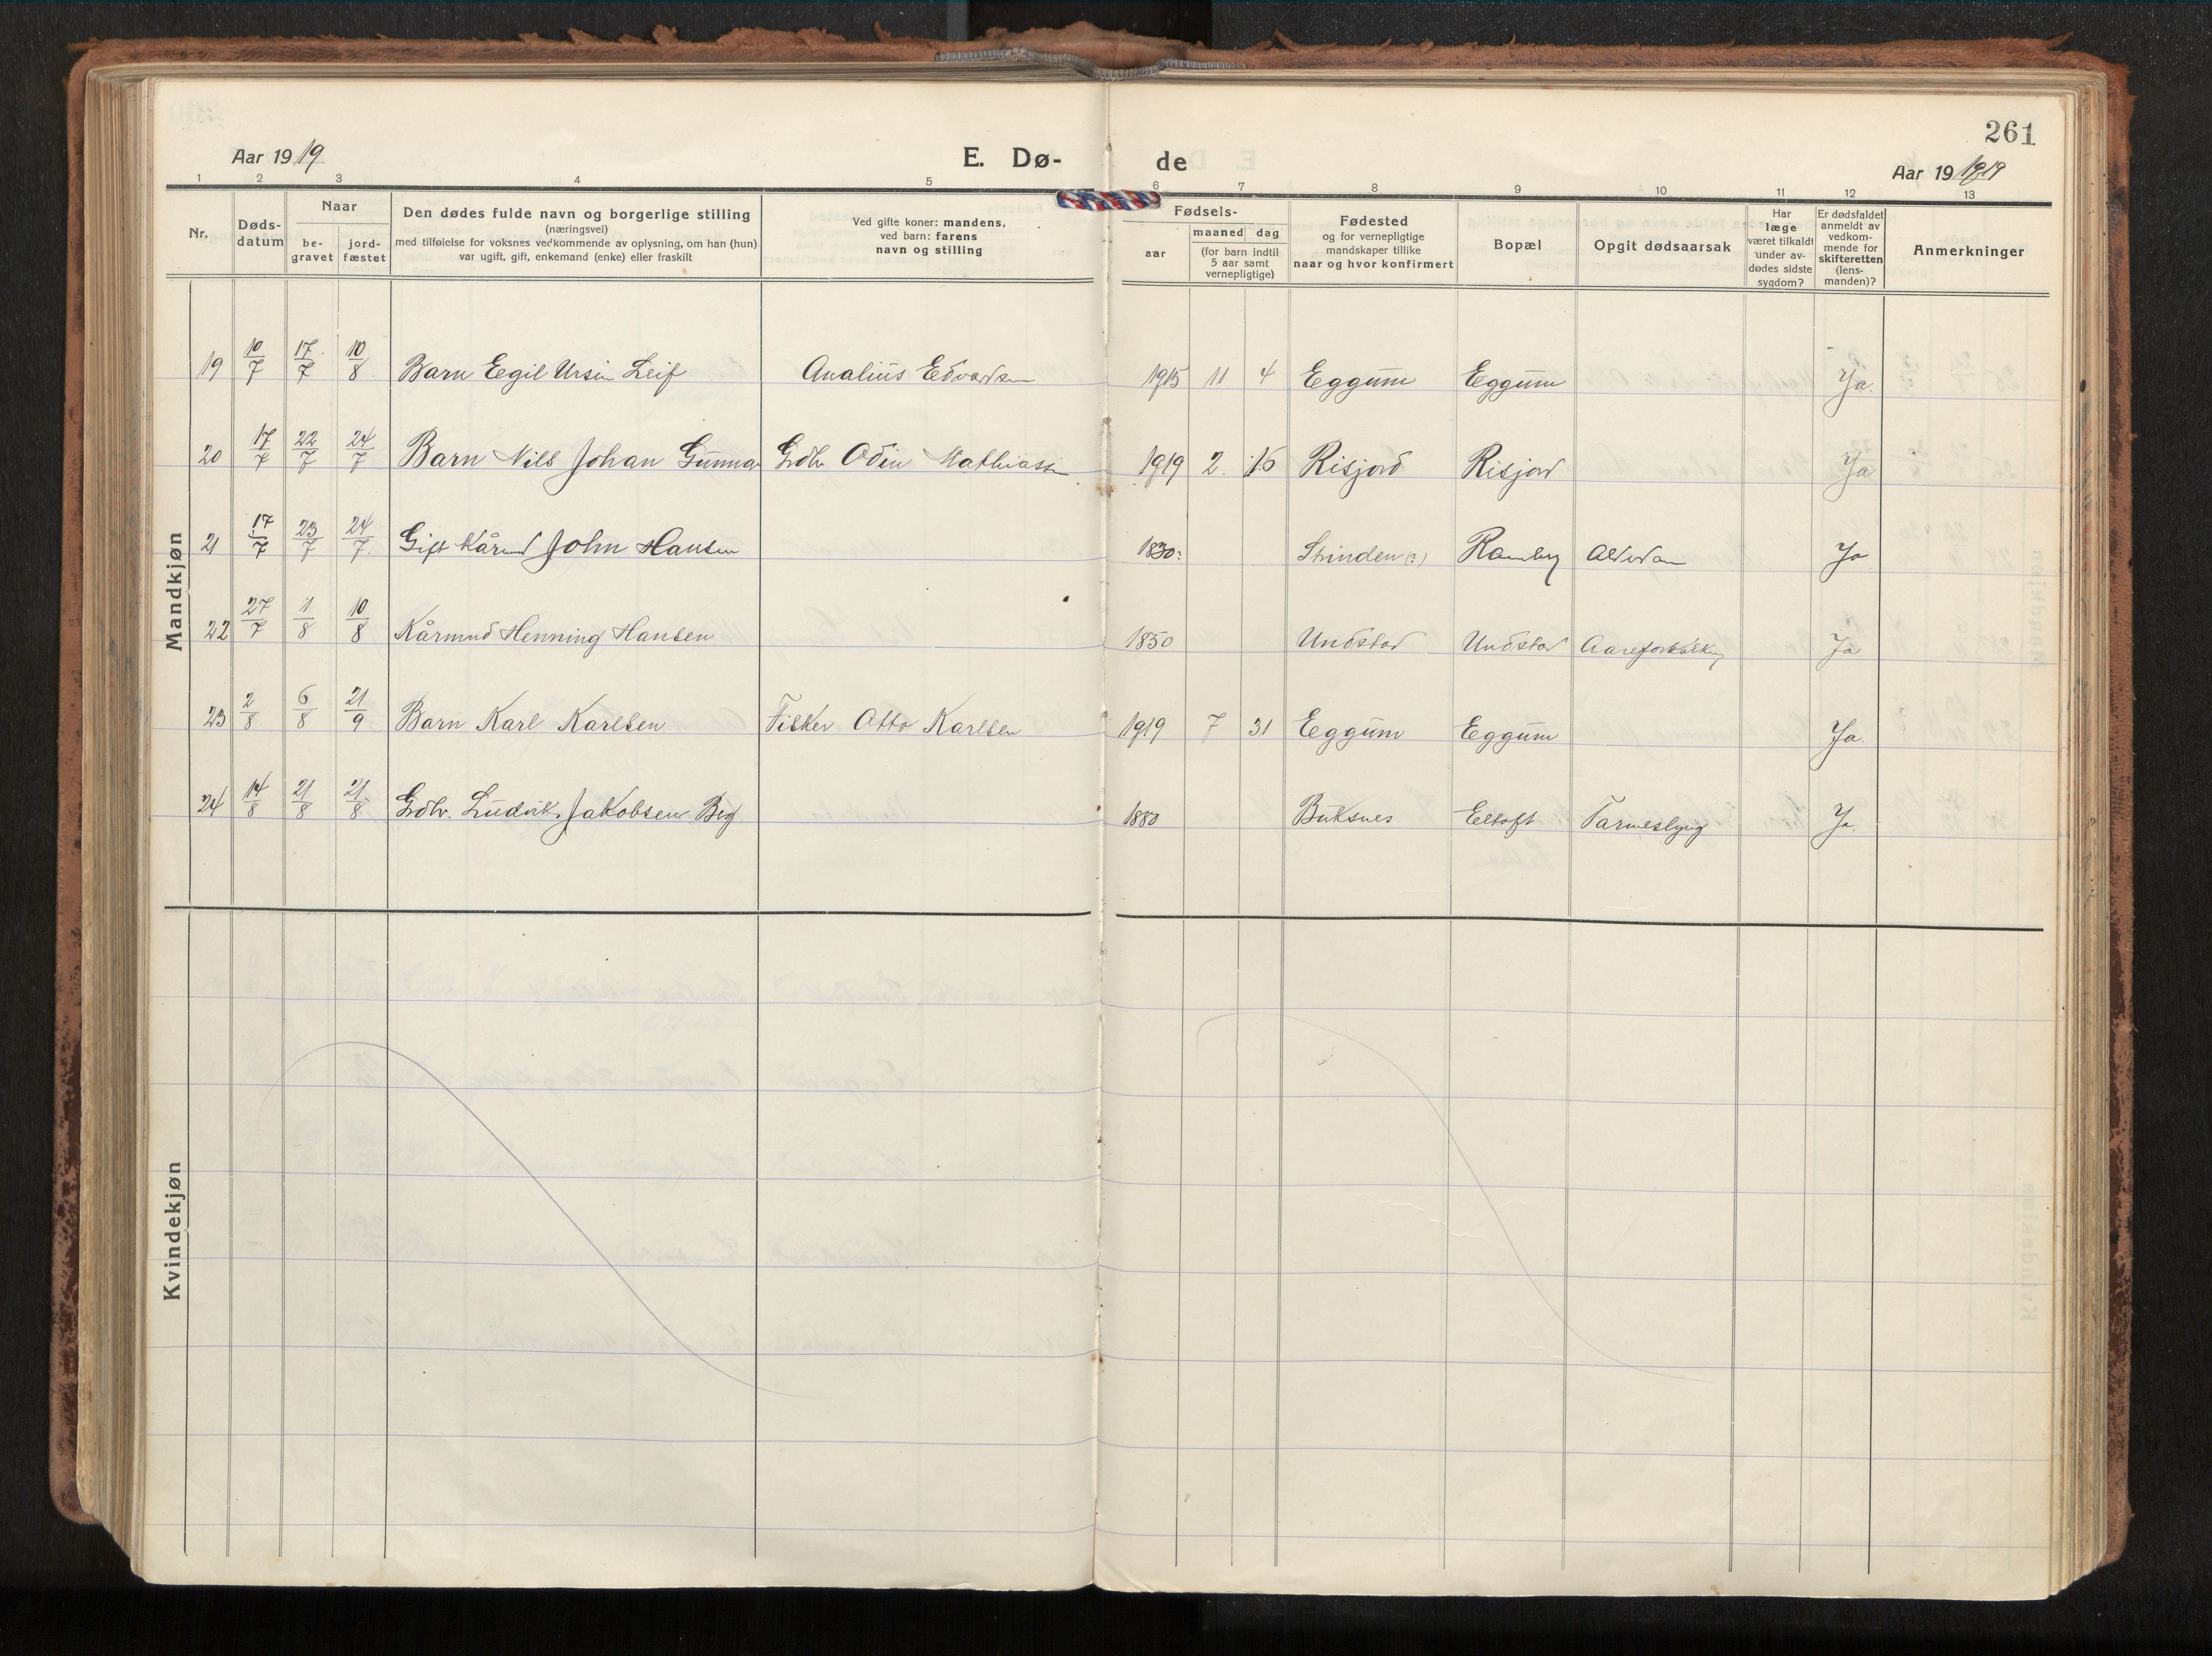 261
Aar 1919
E. Dø-
de
Aar 19 1919
1 2 3 4 5 6 7 8 9 10 11 12 13
Nr.
Døds-
datum
Naar
be-
gravet
jord-
fæstet
Den dødes fulde navn og borgerlige stilling
(næringsvei)
med tilføielse for voksnes vedkommende av oplysning, om han (hun)
var ugift, gift, enkemand (enke) eller fraskilt
Ved gifte koner: mandens,
ved barn: farens
navn og stilling
Fødsels-
aar
maaned dag
(for barn indtil
5 aar samt
vernepligtige)
Fødested
og for vernepligtige
mandskaper tillike
naar og hvor konfirmert
Bopæl
Opgit dødsaarsak
Har
læge
været tilkaldt
under av-
dødes sidste
sygdom?
Er dødsfaldet
anmeldt av
vedkom-
mende for
skifteretten
(lens-
manden)?
Anmerkninger
Mandkjøn
19 10/7 17/7 10/8 Barn Eegil Ursin Leif Analius Edvardsen 1915 11 4 Eggum Eggum Ja.
20 17/7 22/7 24/7 Barn Nils Johan Gunnar Grdbr. Odin Mathiassen 1919 2. 16 Risjord Risjord Ja
21 17/7 23/7 24/7 Gift Kårmd John Hansen 1830: Strinden (?) Ramberg Alderdom Ja
22 27/7 1/8 10/8 Kårmnd Henning Hansen 1850 Undstad Undstad Aareforkalkng Ja
23 2/8 6/8 21/9 Barn Karl Karlsen Fisker Otto Karlsen 1919 7 31 Eeggum Eggum Ja.
24 14/8 21/8 21/8 Grdbr. Ludvik Jakobsen Berg 1880 Buksnes Eltoft Tarmeslyng Ja.
Kvindekjøn